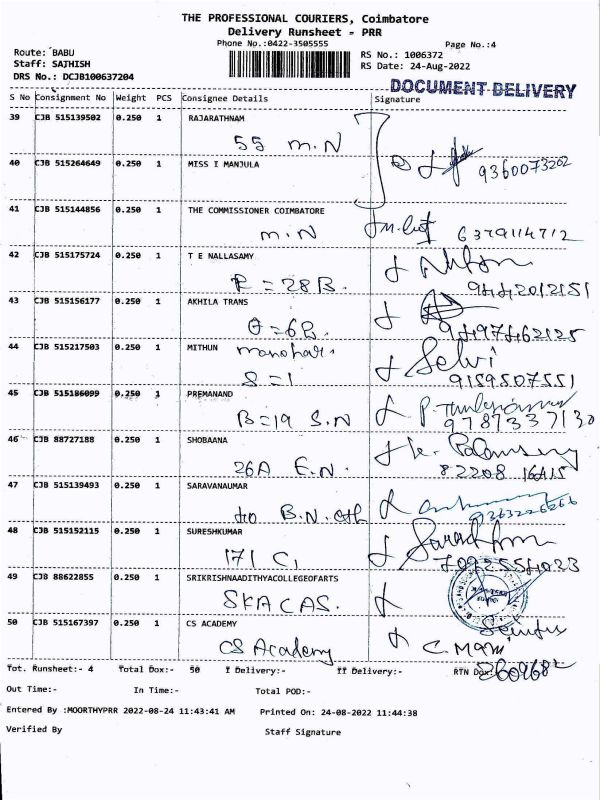 THE PROFESSIONAL COURIERS, Coimbatore
Delivery Runsheet - PRR
Phone No.:0422-3505555
Page No.:4
Route: BABU
RS No.: 1006372
Staff: SATHISH
RS Date: 24-Aug-2022
DRS No.: DCJB100637204
DOCUMENT DELIVERY
S No Consignment No Weight PCS Consignee Details Signature
39 CJB 515139502 0.250 1 RAJARATHNAM
55 m.N
40 CJB 515264649 0.250 1 MISS I MANJULA
9360073202
41 CJB 515144856 0.250 1 THE COMMISSIONER COIMBATORE
m.N 6379114712
42 CJB 515175724 0.250 1 T E NALLASAMY
P = 28 B. 9442012151
43 CJB 515156177 0.250 1 AKHILA TRANS
9497462125
44 CJB 515217503 0.250 1 MITHUN manohar. Selvi
S = 1 9159507551
45 CJB 515186099 0.250 1 PREMANAND
B = 19 S.N 9787337130
46 CJB 88727188 0.250 1 SHOBAANA
26A E.N. 82208 16415
47 CJB 515139493 0.250 1 SARAVANAUMAR
40 B.N. 9363226266
48 CJB 515152115 0.250 1 SURESHKUMAR
171 C, 7092554033
49 CJB 88622855 0.250 1 SRIKRISHNAADITHYACOLLEGEOFARTS
SKACAS.
50 CJB 515167397 0.250 1 CS ACADEMY
CS Academy C. Mani
Tot. Runsheet:- 4 Total Dox:- 50 I Delivery:- II Delivery:- RTN Dox:
Out Time:- In Time:- Total POD:-
Entered By :MOORTHYPRR 2022-08-24 11:43:41 AM Printed On: 24-08-2022 11:44:38
Verified By Staff Signature